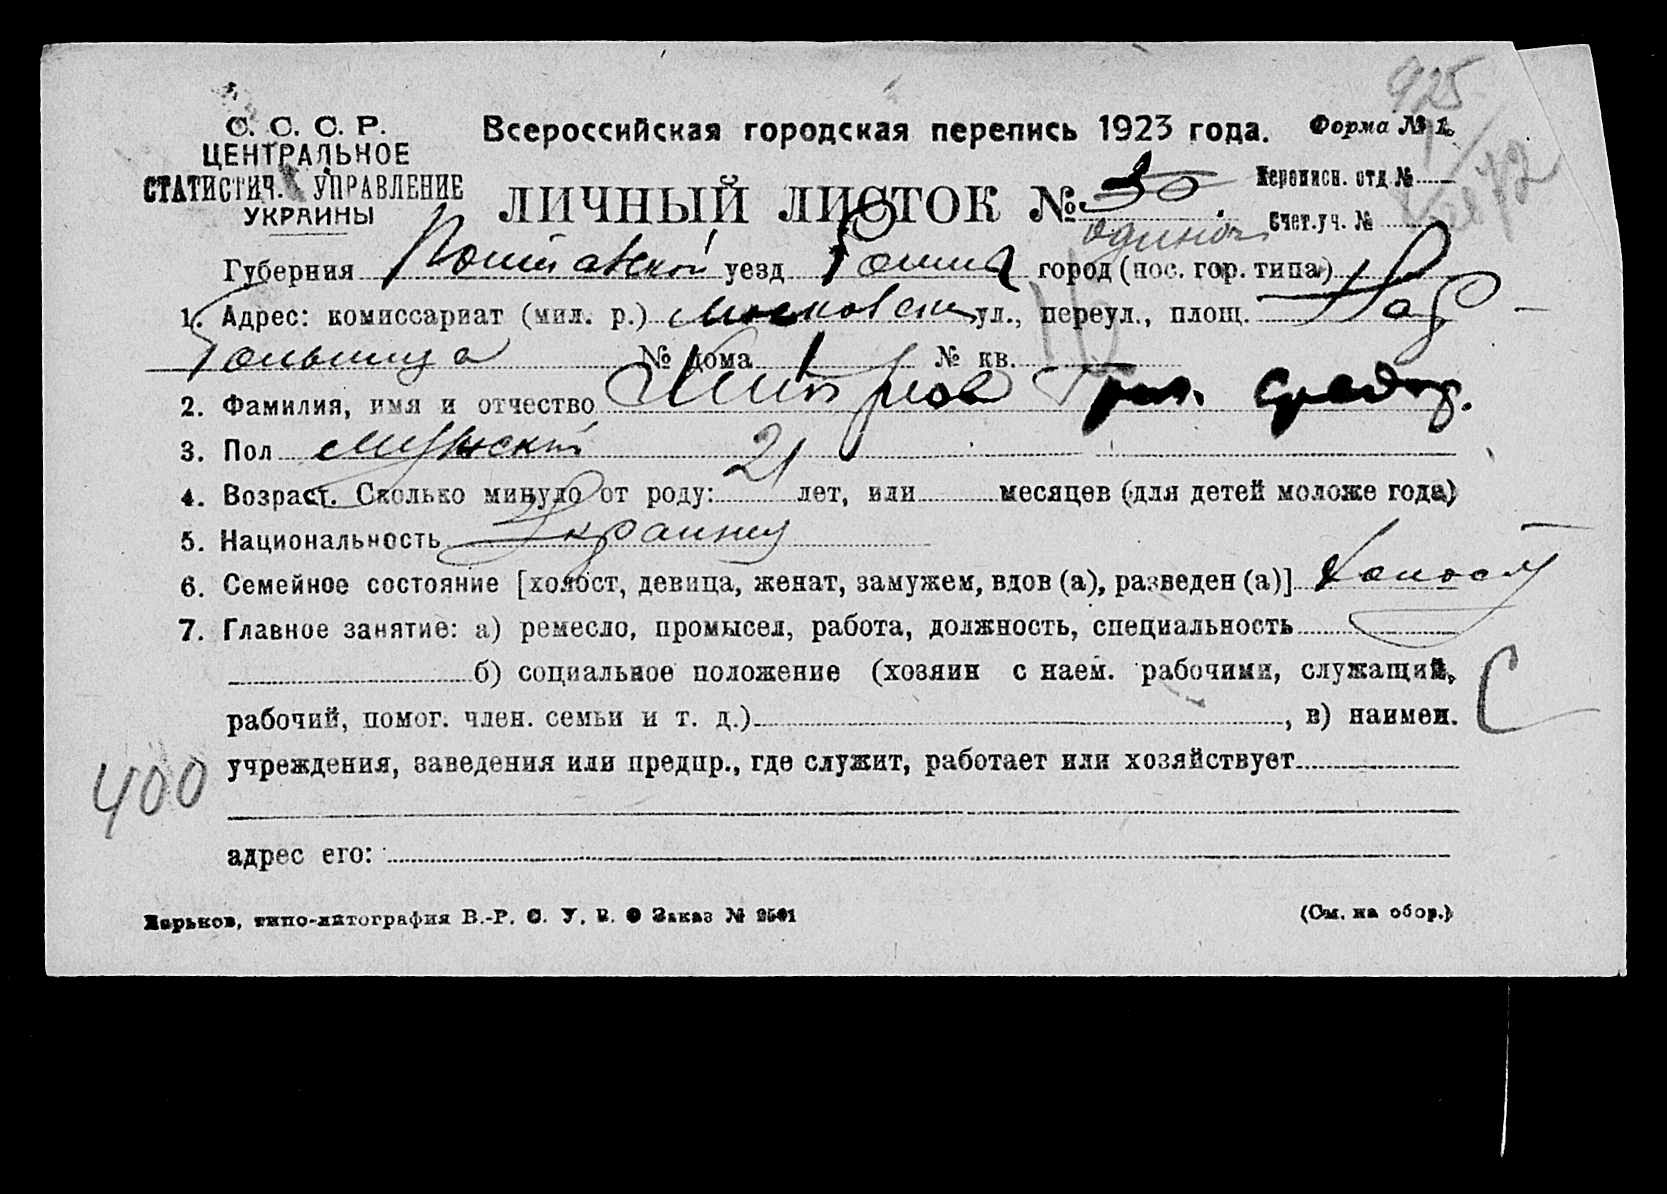 925
С. С. С. Р.
ЦЕНТРАЛЬНОЕ
СТАТИСТИЧ. УПРАВЛЕНИЕ
УКРАИНЫ
Всероссийская городская перепись 1923 года.
Форма № 1.
ЛИЧНЫЙ ЛИСТОК № 30
Переписн. отд №
Счет.уч. №
72
одиноч
Губерния Полтавской уезд Ромны город (пос. гор. типа)
1. Адрес: комиссариат (мил. р.) Московск ул., переул., площ.
16
№ дома 1 № кв.
2. Фамилия, имя и отчество Григ. Федор.
3. Пол Мужской
4. Возраст. Сколько минуло от роду: 21 лет, или месяцев (для детей моложе года)
5. Национальность Украинец
6. Семейное состояние [холост, девица, женат, замужем, вдов (а), разведен (а)] Холост
7. Главное занятие: а) ремесло, промысел, работа, должность, специальность
б) социальное положение (хозяин с наем. рабочими, служащий,
рабочий, помог. член. семьи и т. д.) , в) наимен.
С
учреждения, заведения или предпр., где служит, работает или хозяйствует
400
адрес его:
Харьков, типо-литография В.-Р. С. У. В. О Заказ № 2501
(См. на обор.)